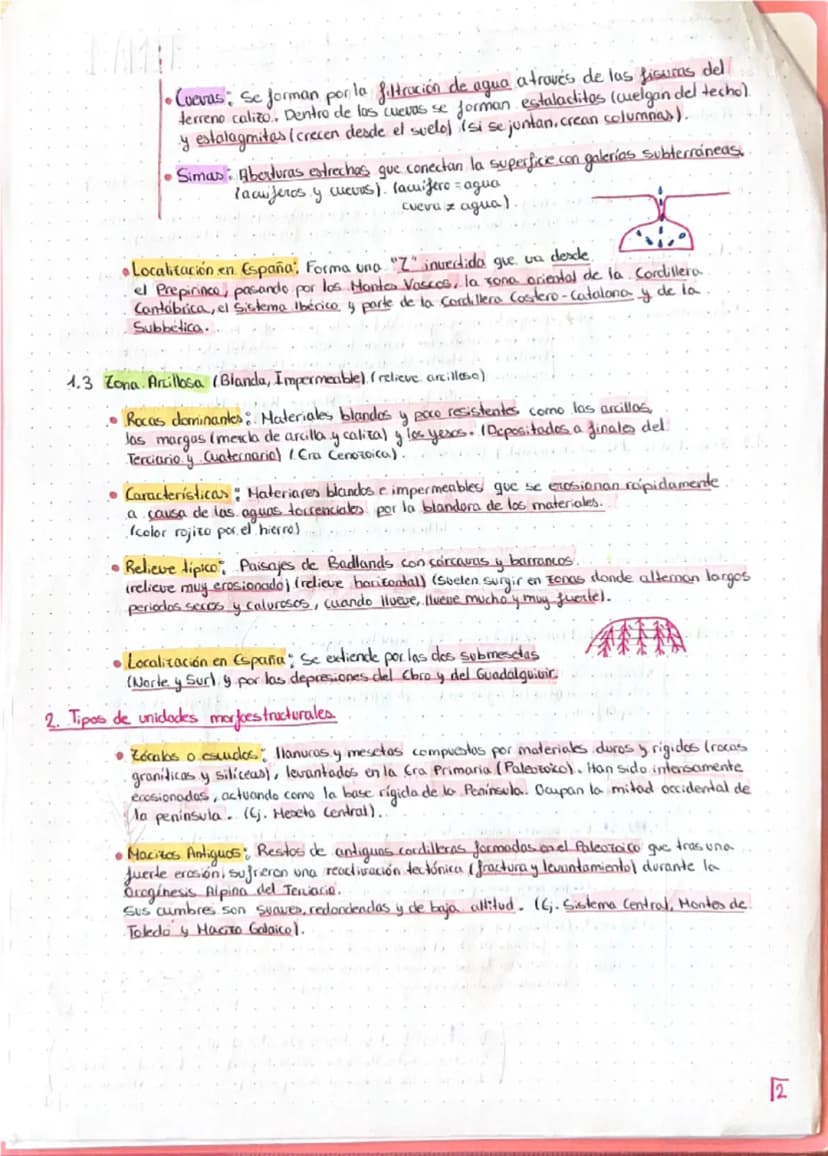 • Cuevas: Se forman por la filtración de agua a través de las fisuras del
terreno calizo. Dentro de las cuevas se forman estalactitas (cuelgan del techo)
y estalagmitas (crecen desde el suelo) (si se juntan, crean columnas).
• Simas: Aberturas estrechas que conectan la superficie con galerías subterráneas.
(acuíferos y cuevas). (acuífero = agua
cueva ≠ agua).
• Localización en España: Forma una "Z" invertida que va desde
el Prepirineo, pasando por los Montes Vascos, la zona oriental de la Cordillera
Cantábrica, el Sistema Ibérico y parte de la Cordillera Costero-Catalana y de la
Subbética.
1.3 Zona Arcillosa (Blanda, Impermeable) (relieve arcilloso)
• Rocas dominantes: Materiales blandos y poco resistentes como las arcillas,
las margas (mezcla de arcilla y caliza) y los yesos. (Depositados a finales del
Terciario y Cuaternario) (Era Cenozoica).
• Características: Materiales blandos e impermeables que se erosionan rápidamente
a causa de las aguas torrenciales por la blandora de los materiales.
(color rojizo por el hierro)
• Relieve típico: Paisajes de Badlands con cárcavas y barrancos.
(relieve muy erosionado) (relieve horizontal) (Suelen surgir en zonas donde alternan largos
periodos secos y calurosos, cuando llueve, llueve mucho y muy fuerte).
• Localización en España: Se extiende por las dos submesetas
(Norte y Sur) y por las depresiones del Ebro y del Guadalquivir.
2. Tipos de unidades morfoestructurales.
• Zócalos o escudos: llanuras y mesetas compuestas por materiales duros y rígidos (rocas
graníticas y silíceas), levantados en la Era Primaria (Paleozoico). Han sido intensamente
erosionadas, actuando como la base rígida de la Península. Ocupan la mitad occidental de
la península. (Ej. Meseta Central).
• Macizos Antiguos: Restos de antiguas cordilleras formadas en el Paleozoico que tras una
fuerte erosión, sufrieron una reactivación tectónica (fractura y levantamiento) durante la
Orogénesis Alpina del Terciario.
Sus cumbres son suaves, redondendas y de baja altitud. (Ej. Sistema Central, Montes de
Toledo y Macizo Galaico).
2